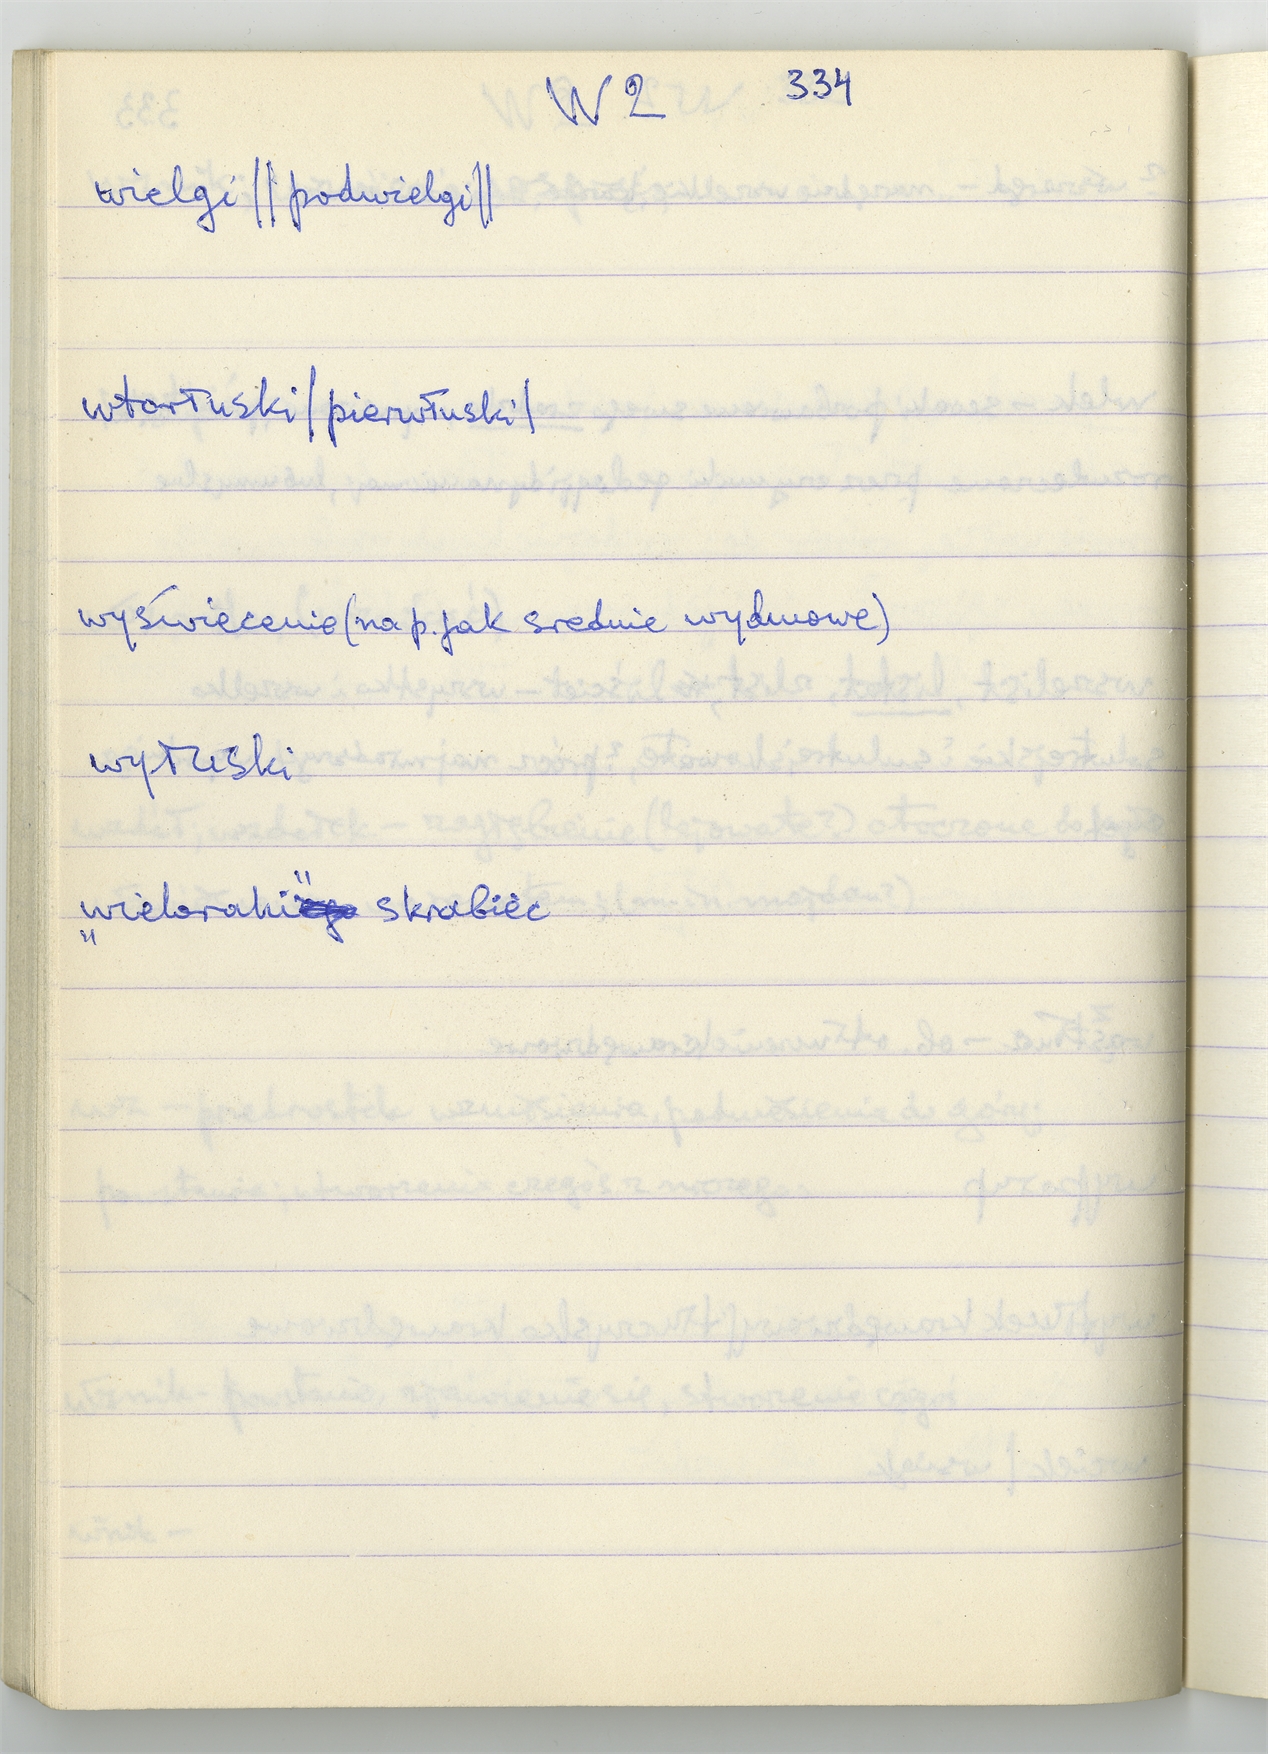 W 2 334
wielgi || podwielgi ||
wtórłuski | pierwłuski |
wyświecenie (nap. jak srednie wydmowe)
wyłuski
„wieloraki” skrabiec